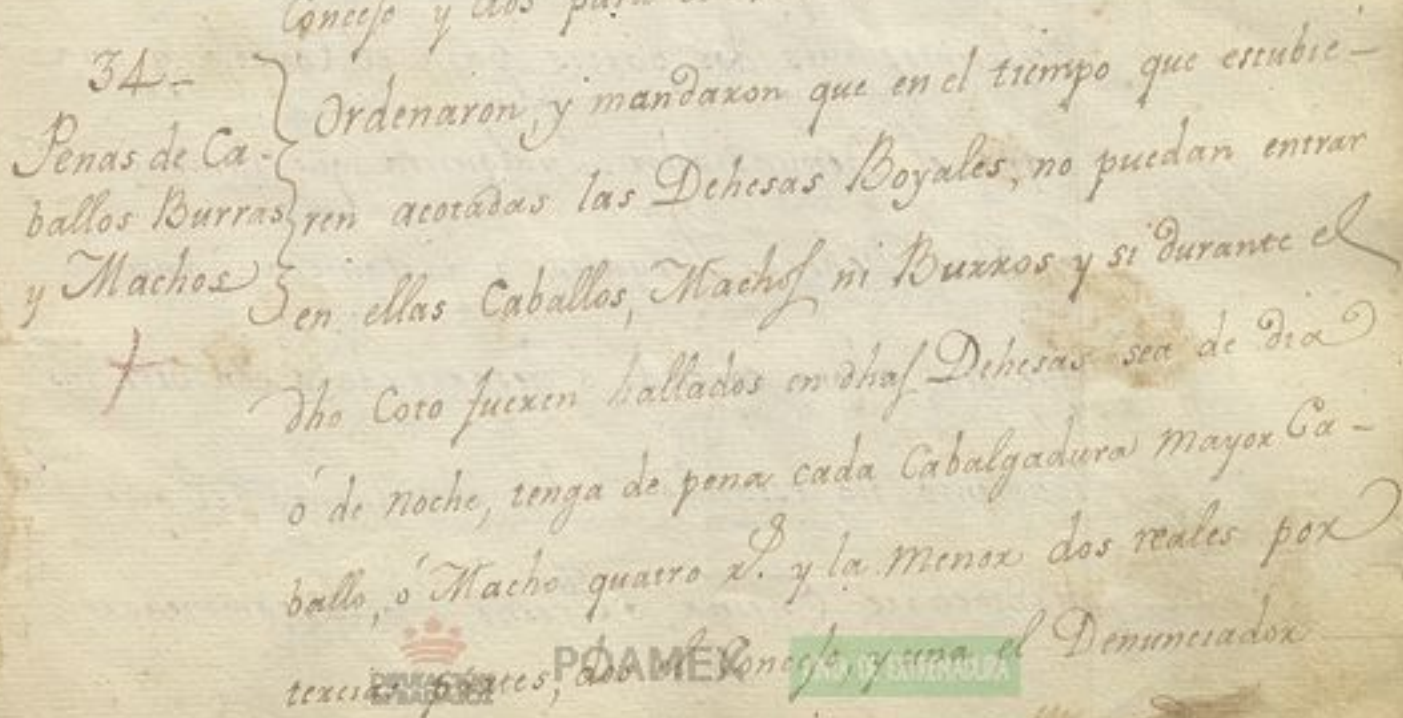 Concejo y dos para
34-
Penas de Ca-
ballos Burras
y Machos
Ordenaron, y mandaron que en el tiempo que estubie-
ren acotadas las Dehesas Boyales, no puedan entrar
en ellas Caballos, Machos ni Burros y si durante el
dho Coto fueren hallados en dhas Dehesas sea de dia
ó de noche, tenga de pena cada Cabalgadura mayor Ca-
ballo, ó Macho quatro rs. y la menor dos reales por
tercias partes, dos el Concejo, y una el Denunciador
DIPUTACIÓN
DE BADAJOZ
PDAMEX
JUNTA DE EXTREMADURA